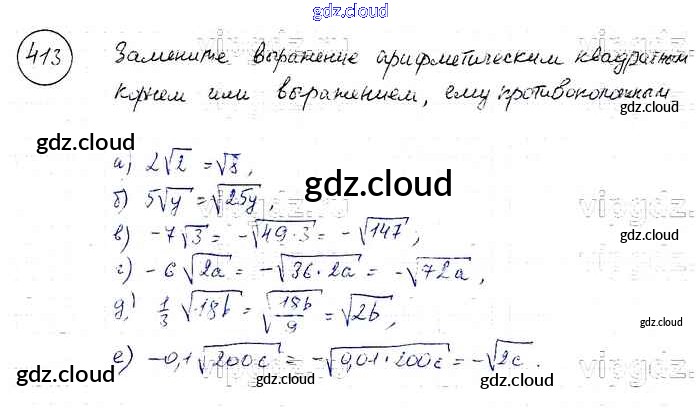 gdz.cloud
gdz.cloud
413 Замените выражение арифметическим квадратным
корнем или выражением, ему противоположным
gdz.cloud
gdz.cloud
а) 2√2 = √8,
gdz.cloud
б) 5√y = √25y,
в) -7√3 = -√49·3 = -√147,
г) -6√2a = -√36·2a = -√72a,
д) 1/3 √18b = √18b/9 = √2b,
gdz.cloud
е) -0,1√200c = -√0,01·200c = -√2c.
gdz.cloud
gdz.cloud